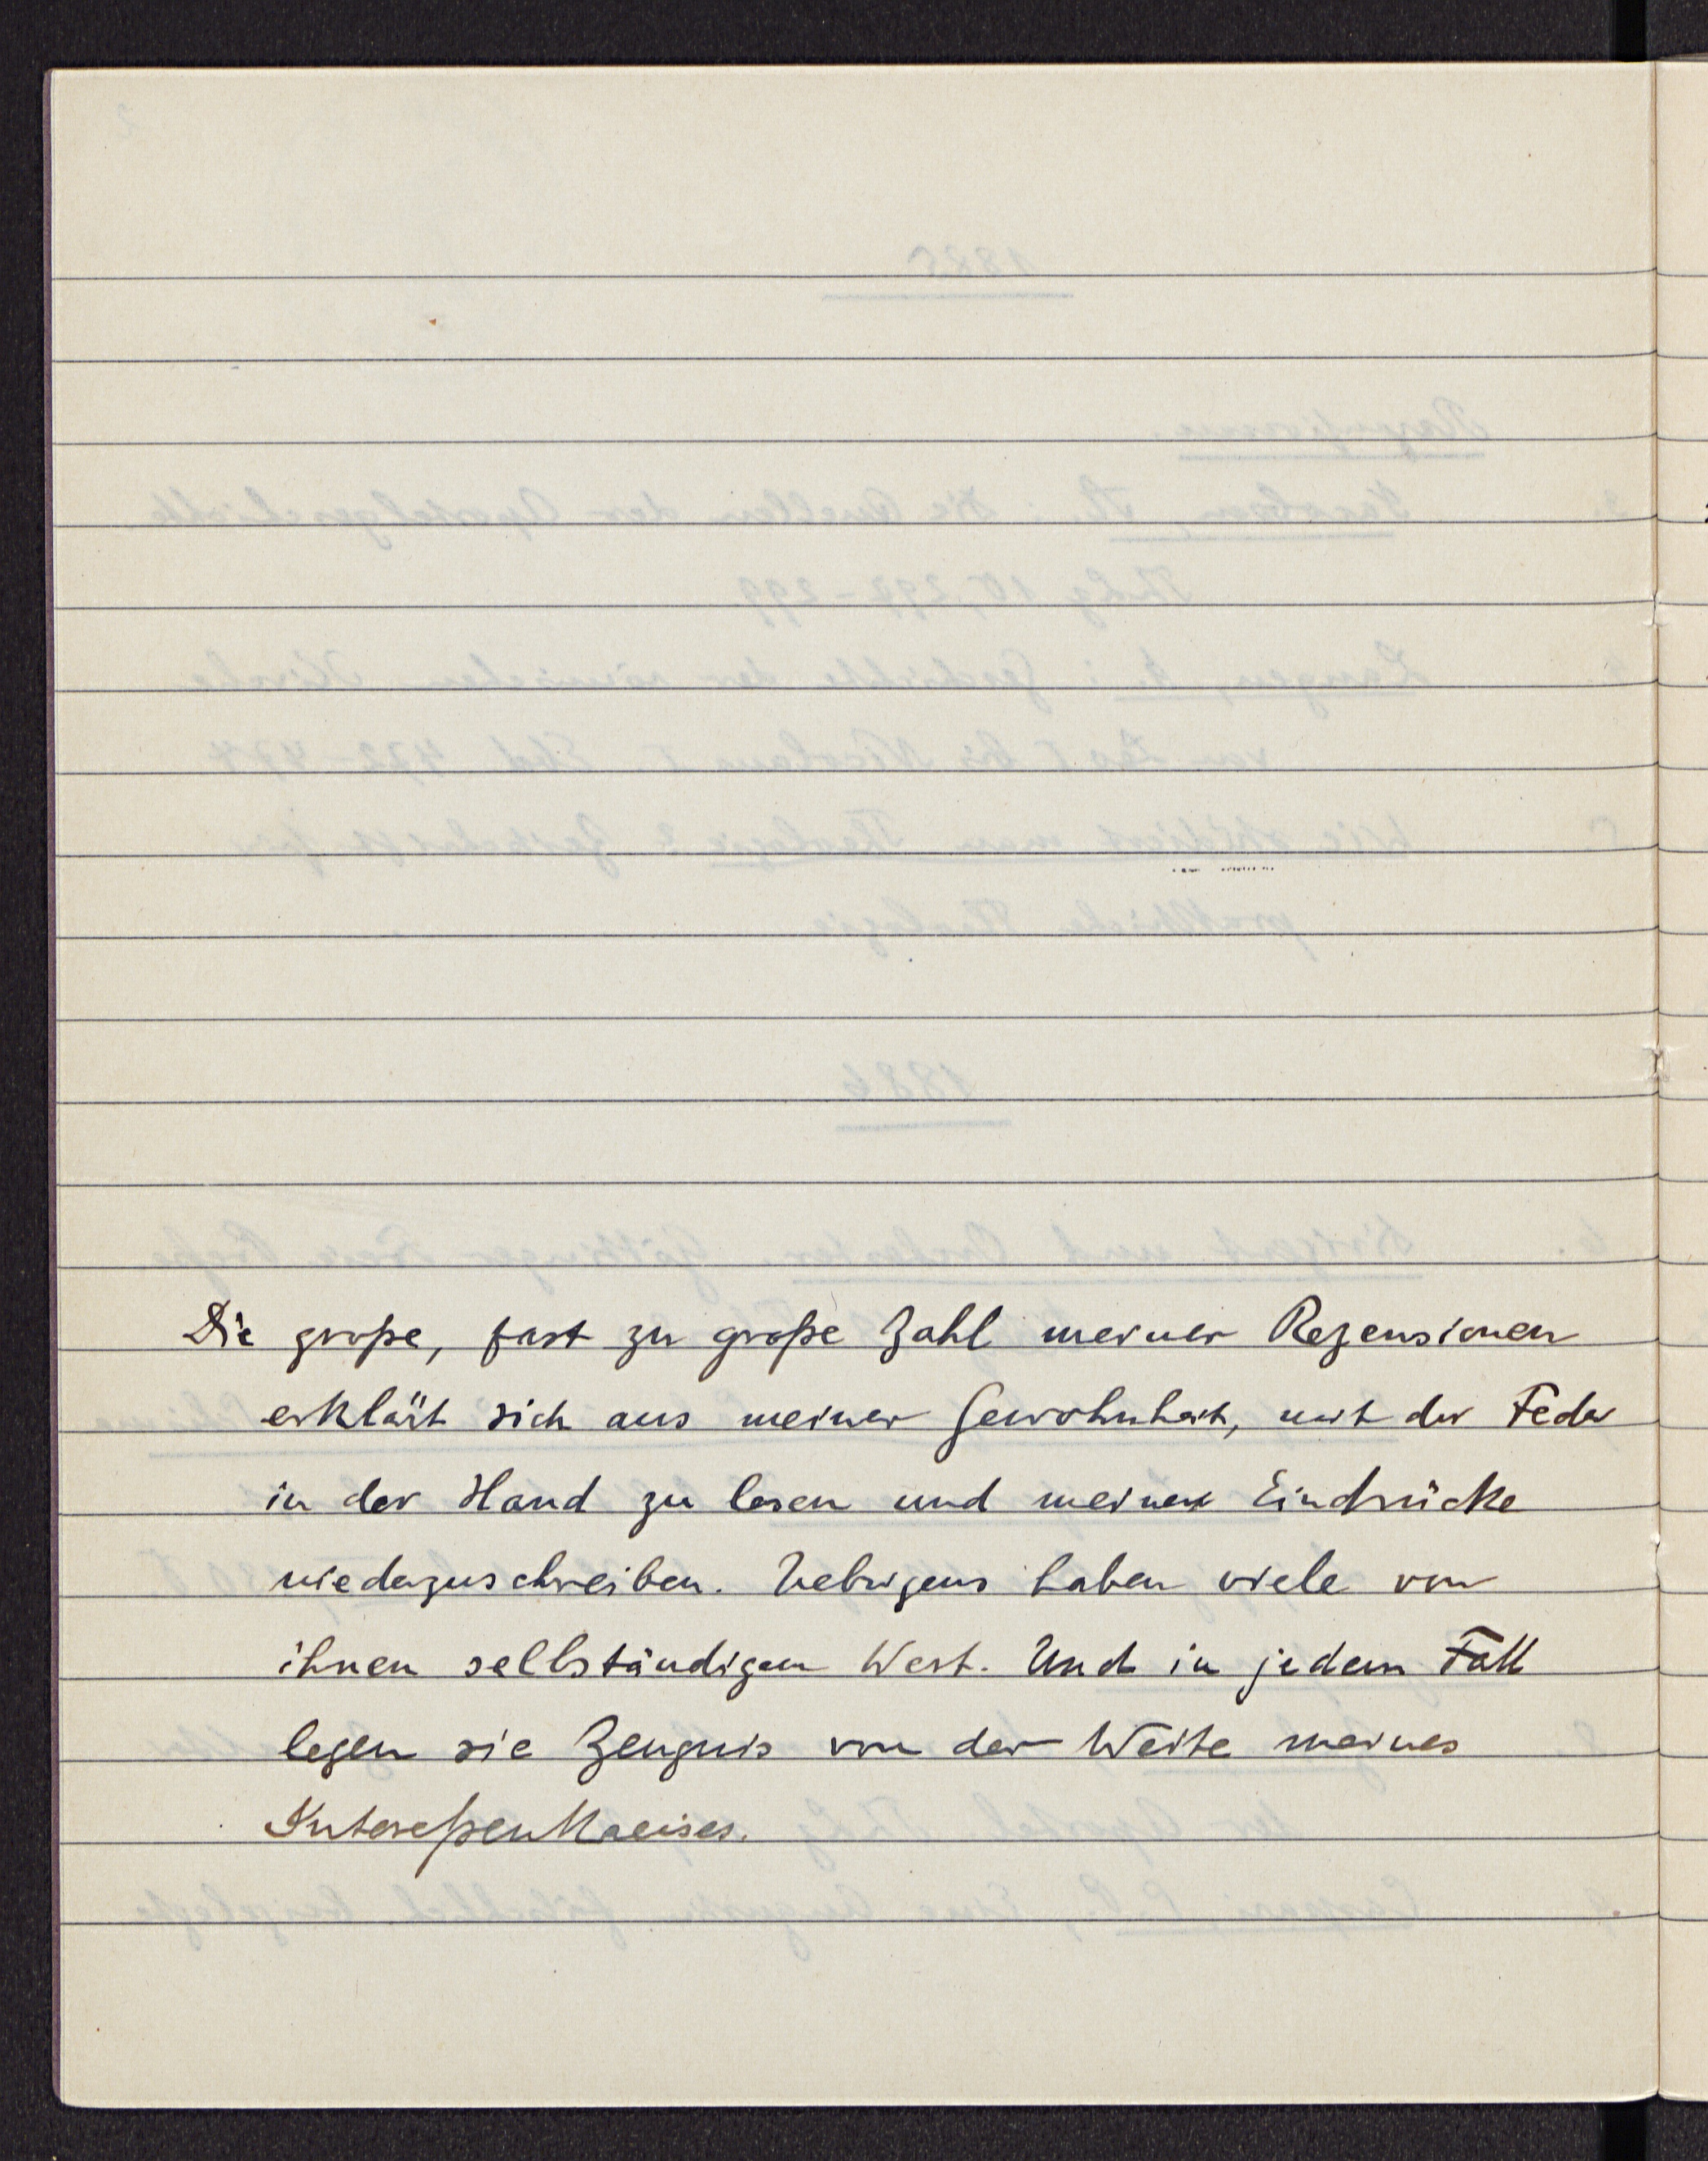 Die große, fast zu große Zahl meiner Rezensionen
erklärt sich aus meiner Gewohnheit, mit der Feder
in der Hand zu lesen und meine Eindrücke
niederzuschreiben. Uebrigens haben viele von
ihnen selbständigen Wert. Und in jedem Fall
legen sie Zeugnis von der Weite meines
Intereßenkreises.